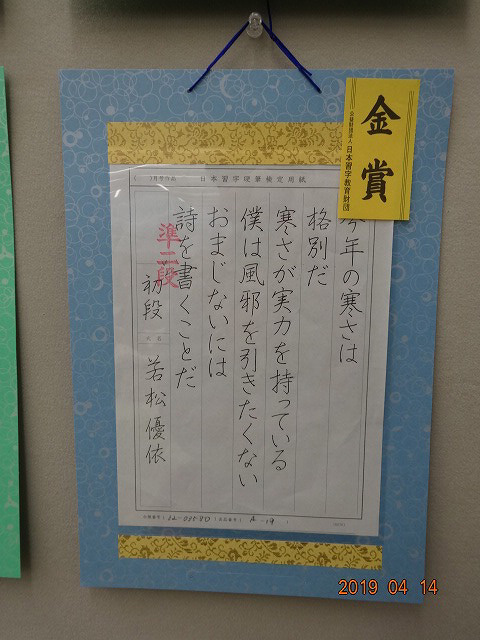 金賞
公益財団法人 日本習字教育財団
日本習字硬筆検定用紙
今年の寒さは
格別だ
寒さが実力を持っている
僕は風邪を引きたくない
おまじないには
詩を書くことだ
準二段
初段 若松優依
氏名
2019 04 14